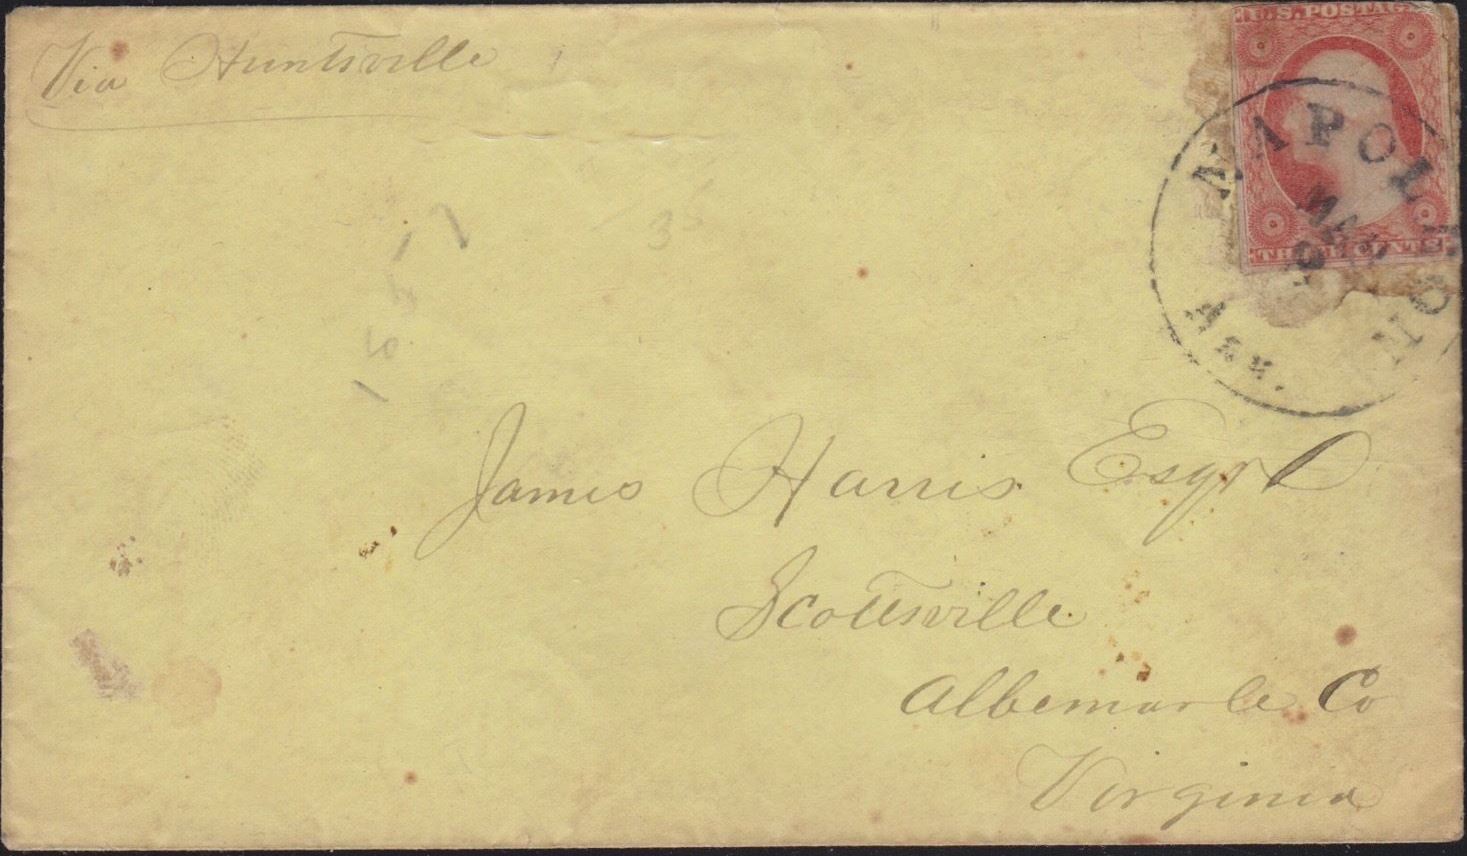 Via Huntsville
U.S. POSTAG
THREE CENTS
NAPOLEON
MAR
9
Ark.
35
James Harris Esqr
Scottsville
Albemarle Co
Virginia